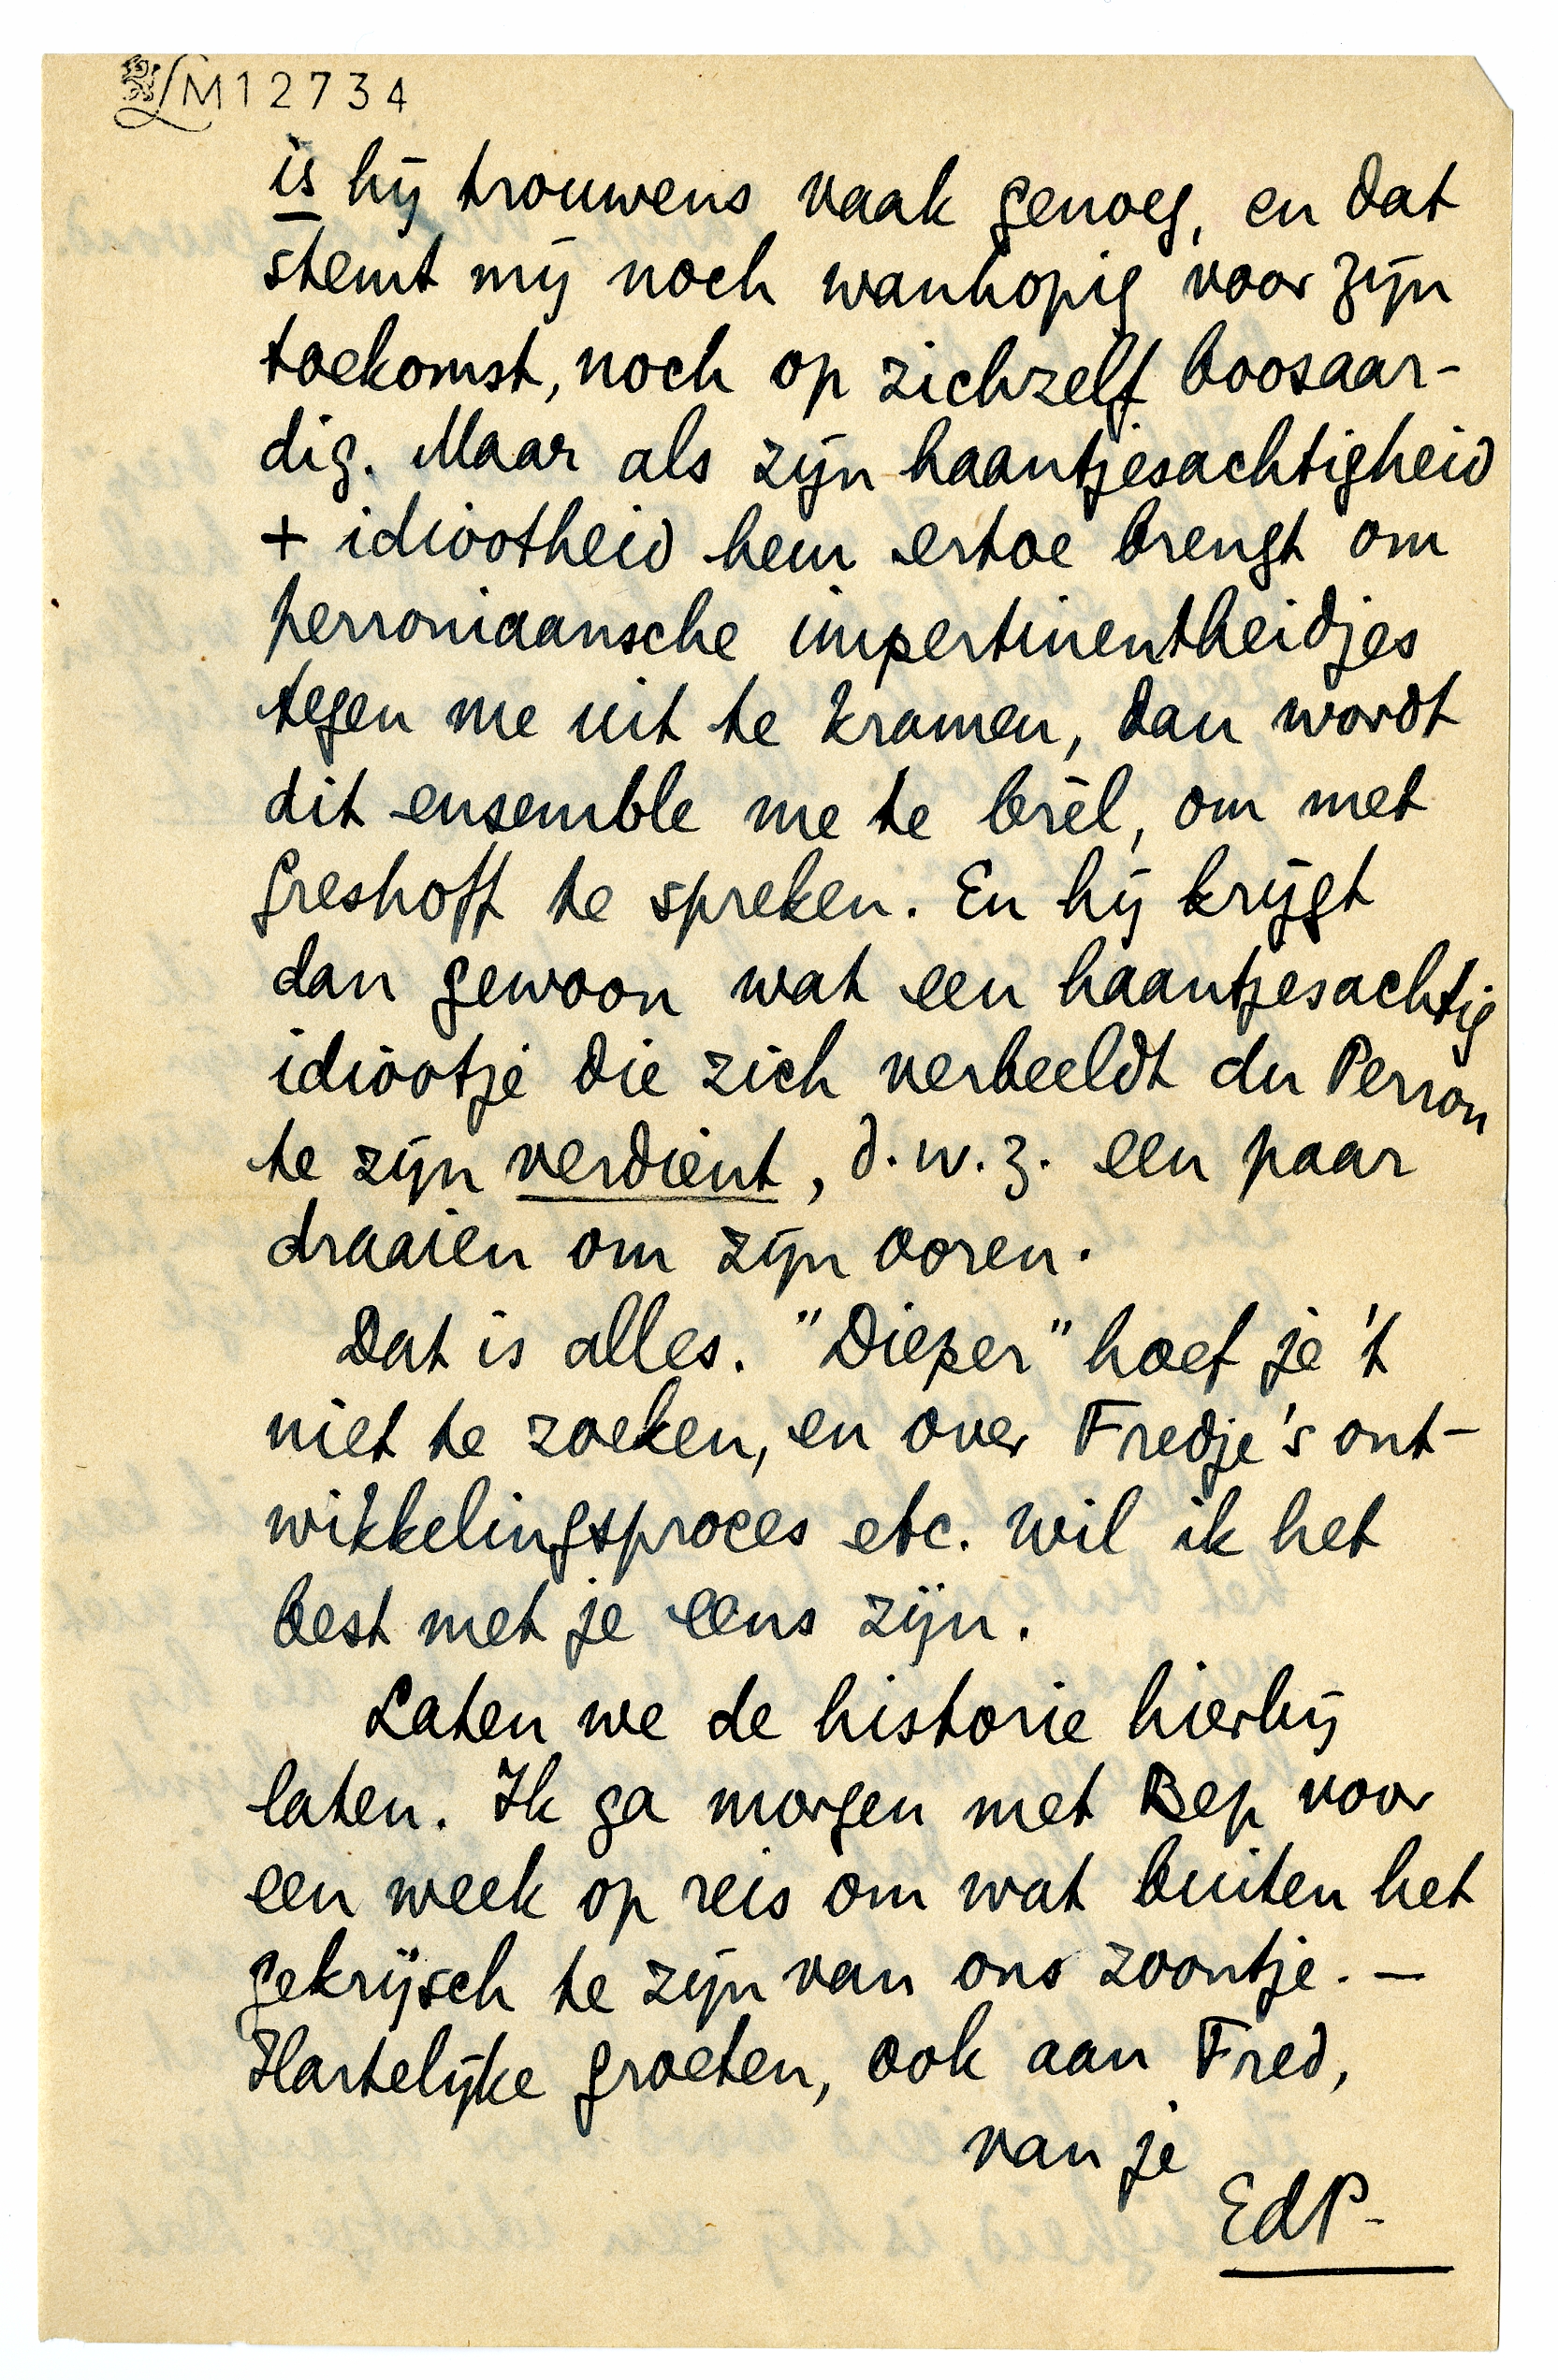 LM12734
is hij trouwens vaak genoeg, en dat
stemt mij noch wanhopig voor zijn
toekomst, noch op zichzelf boosaar-
dig. Maar als zijn haantjesachtigheid
+ idiootheid hem ertoe brengt om
perroniaansche impertinentheidjes
tegen me uit te kramen, dan wordt
dit ensemble me te brèl, om met
Greshoff te spreken. En hij krijgt
dan gewoon wat een haantjesachtig
idiootje die zich verbeeldt du Perron
te zijn verdient, d.w.z. een paar
draaien om zijn ooren.
Dat is alles. "Dieper" hoef je 't
niet te zoeken, en over Fredje's ont-
wikkelingsproces etc. wil ik het
best met je eens zijn.
Laten we de historie hierbij
laten. Ik ga morgen met Bep voor
een week op reis om wat buiten het
gekrijsch te zijn van ons zoontje. —
Hartelijke groeten, ook aan Fred,
van je
EdP-